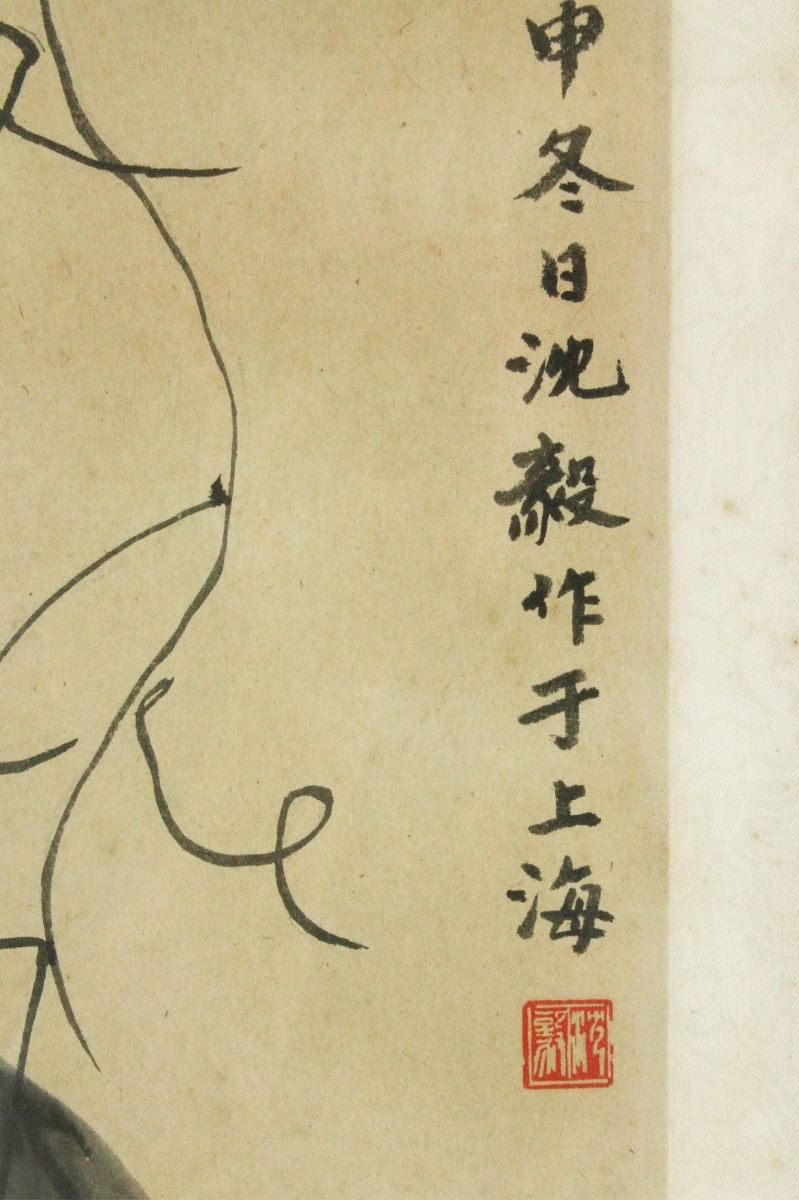 申冬日沈毅作于上海